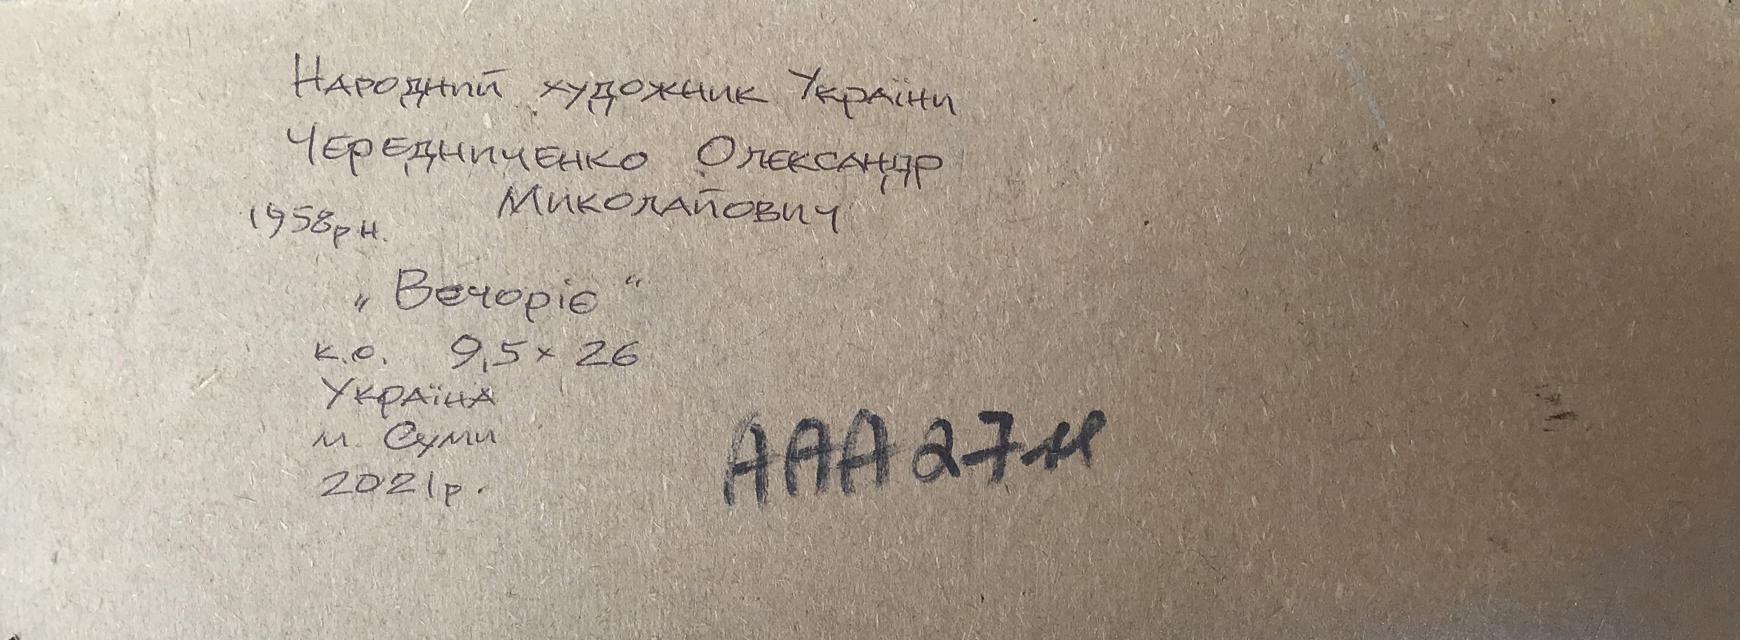 Народний художник України
Чередниченко Олександр
Миколайович
1958р н.
„ Вечоріє “
к.о. 9,5 х 26
Україна
м. Суми
2021р.
ААА 27м